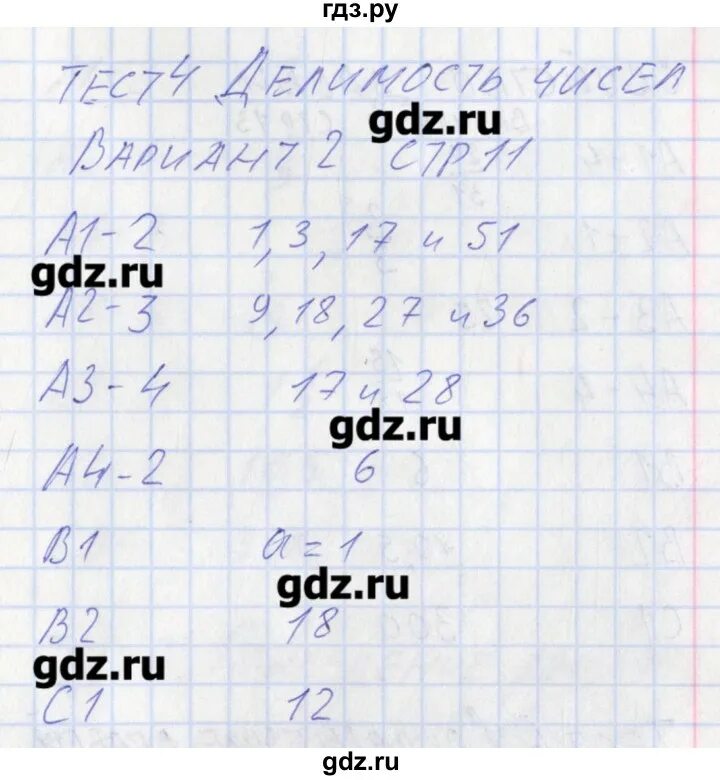 гдз.ру
ТЕСТ4 ДЕЛИМОСТЬ ЧИСЕЛ
gdz.ru
ВАРИАНТ 2 СТР 11
А1-2 1, 3, 17 и 51
gdz.ru
А2-3 9, 18, 27 и 36
А3-4 17 и 28
gdz.ru
А4-2 6
В1 а = 1
gdz.ru
В2 18
gdz.ru
С1 12
gdz.ru